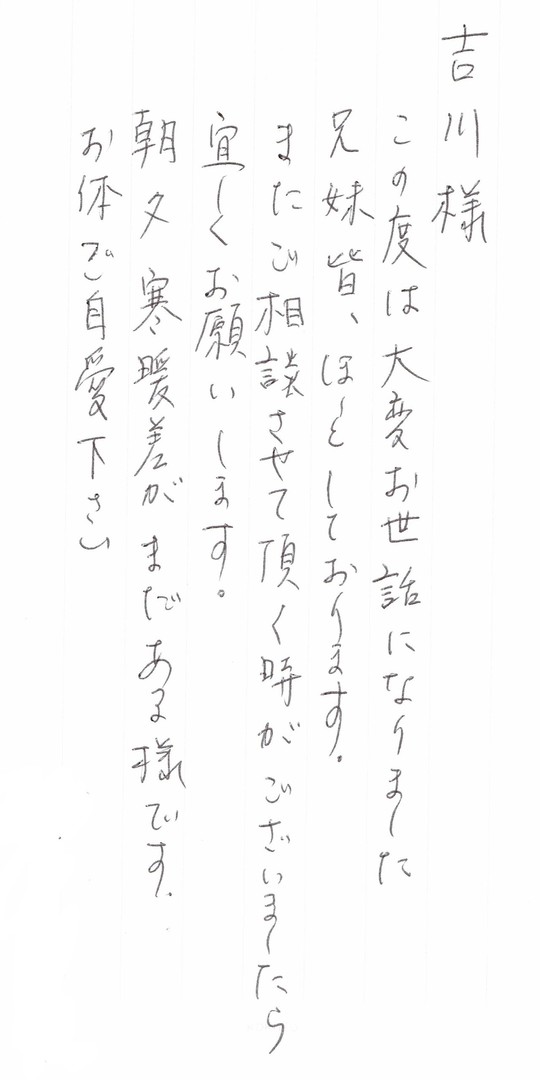 吉川様
この度は大変お世話になりました
兄妹皆、ほっとしております。
またご相談させて頂く時がございましたら
宜しくお願いします。
朝夕寒暖差がまだある様です。
お体ご自愛下さい